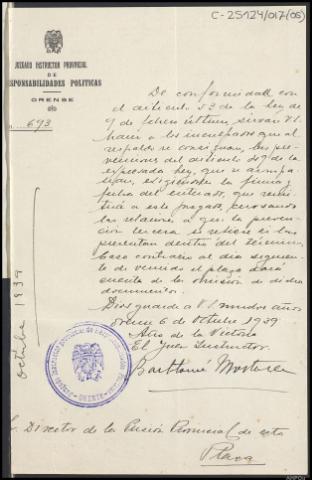 C-25124/017(05)
JUZGADO INSTRUCTOR PROVINCIAL
DE
RESPONSABILIDADES POLITICAS
ORENSE
693
De conformidad con
el artículo 53 de la ley de
9 de febrero último, sírvase V.I.
hacer a los inculpados que al
respaldo se consignan, las pre-
venciones del artículo 49 de la
expresada ley, que se acompa-
ñan, exigiéndoles la firma
fecha del enterado, que resti-
tuirá a este Juzgado,
las relaciones a que la preven-
ción tercera se refiere si las
presentan dentro del término,
Caso contrario al día siguien-
te de vencido el plazo dará
cuenta de la omisión de dichos
documentos.
Dios guarde a V.I. muchos años
Orense 6 de Octubre 1939
Año de la Victoria
El Juez Instructor.
Bartolomé
Octubre 1939
ORENSE
Sr. Director de la Prisión Provincial de esta
Plaza